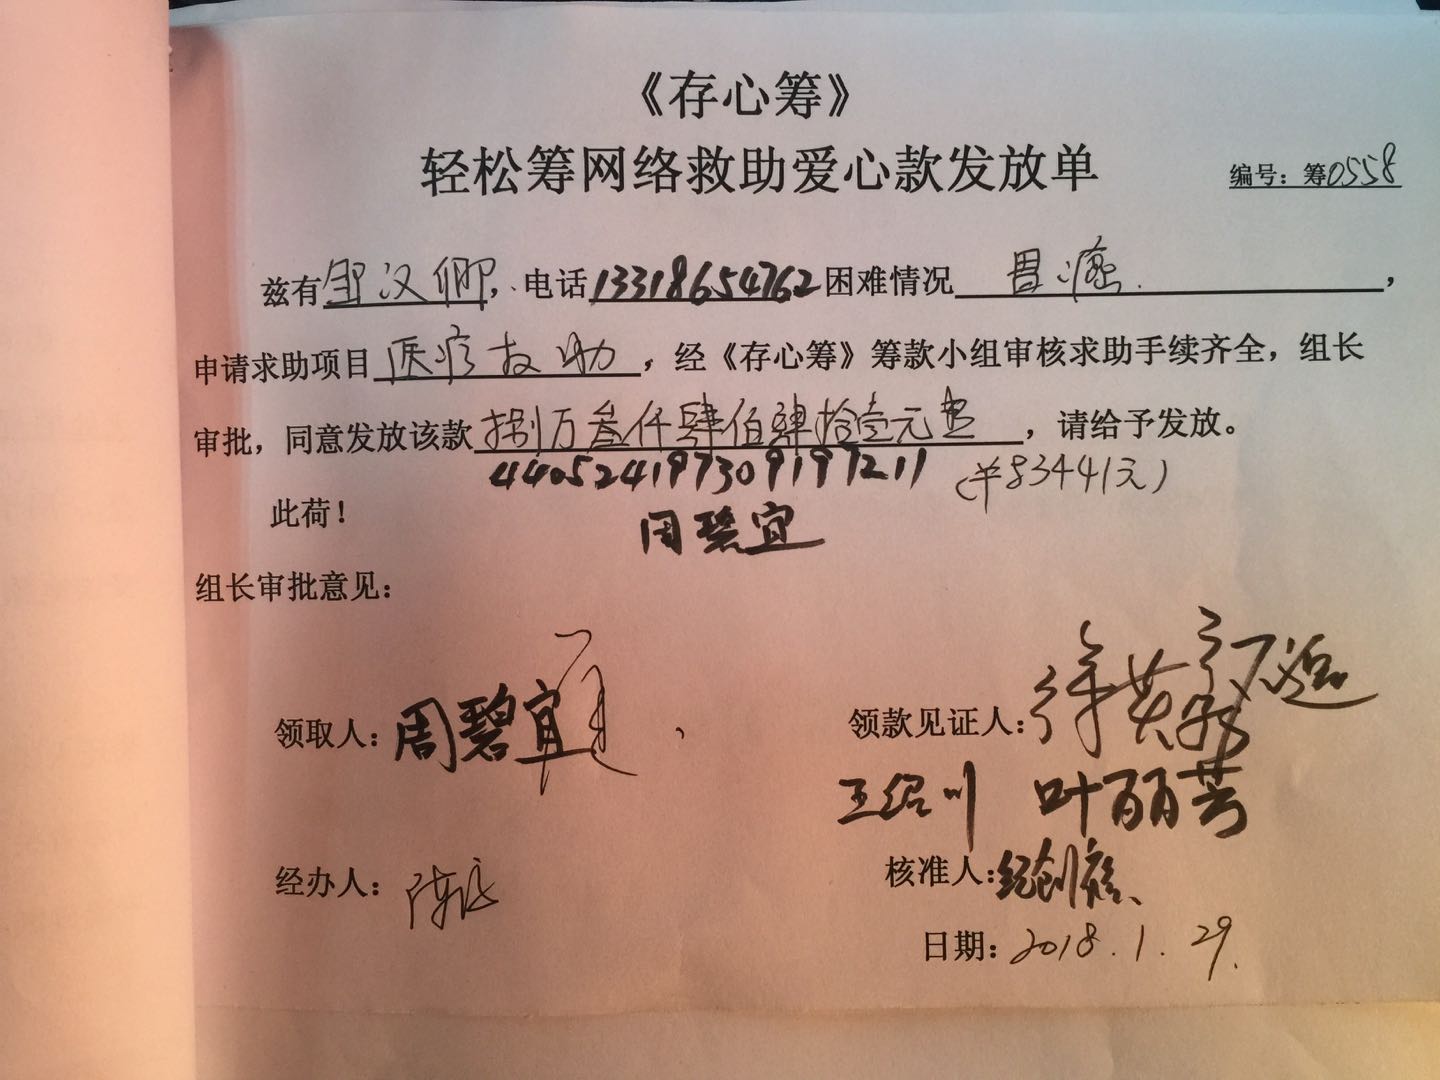 《存心筹》
轻松筹网络救助爱心款发放单
编号：筹0558
兹有邹汉卿，电话13318654762困难情况胃癌，
申请求助项目医疗救助，经《存心筹》筹款小组审核求助手续齐全，组长
审批，同意发放该款捌万叁仟肆佰肆拾壹元整，请给予发放。
440524197309197211 （¥83441元）
此荷！
周碧宜
组长审批意见：
领取人：周碧宜
领款见证人：
王绍川 叶丽芳
经办人：
核准人：
日期：2018.1.29.